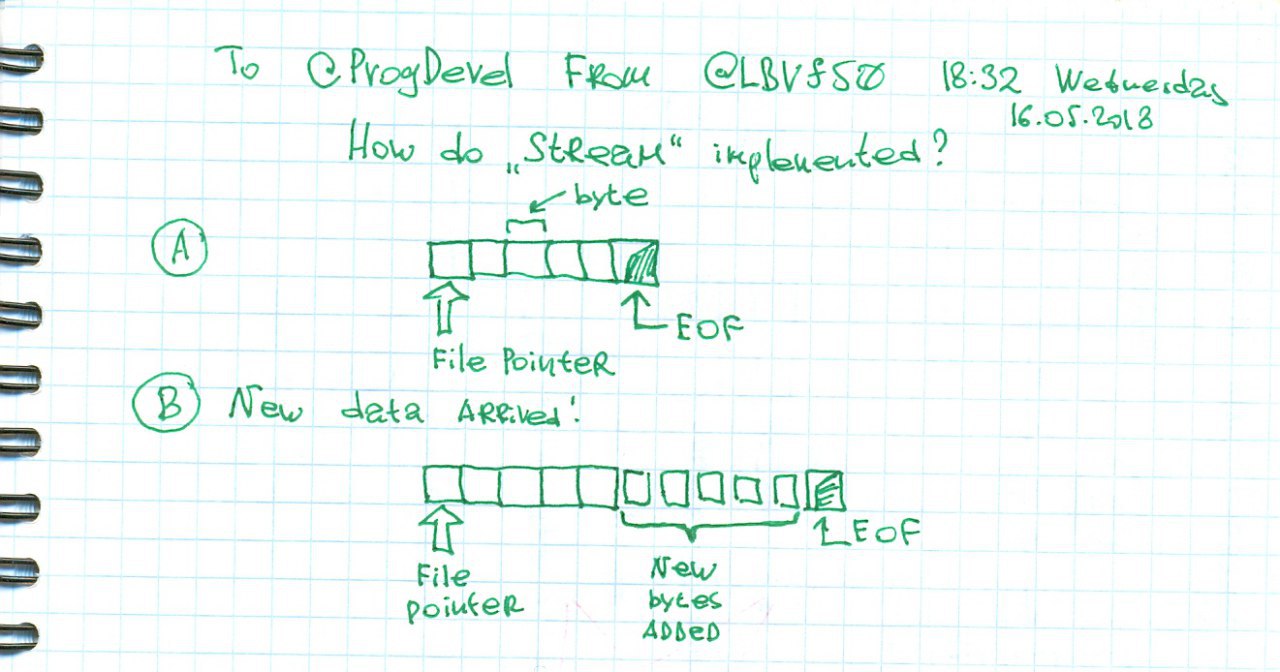 To @ProgDevel From @LBVf50 18:32 Wednesday
16.05.2018
How do „Stream“ implemented?
byte
A
EOF
File Pointer
B New data Arrived!
EOF
File
pointer
New
bytes
Added